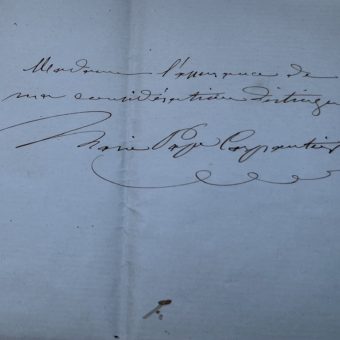 Madame l'assurance de
ma considération distinguée
Marie Pape Carpantier